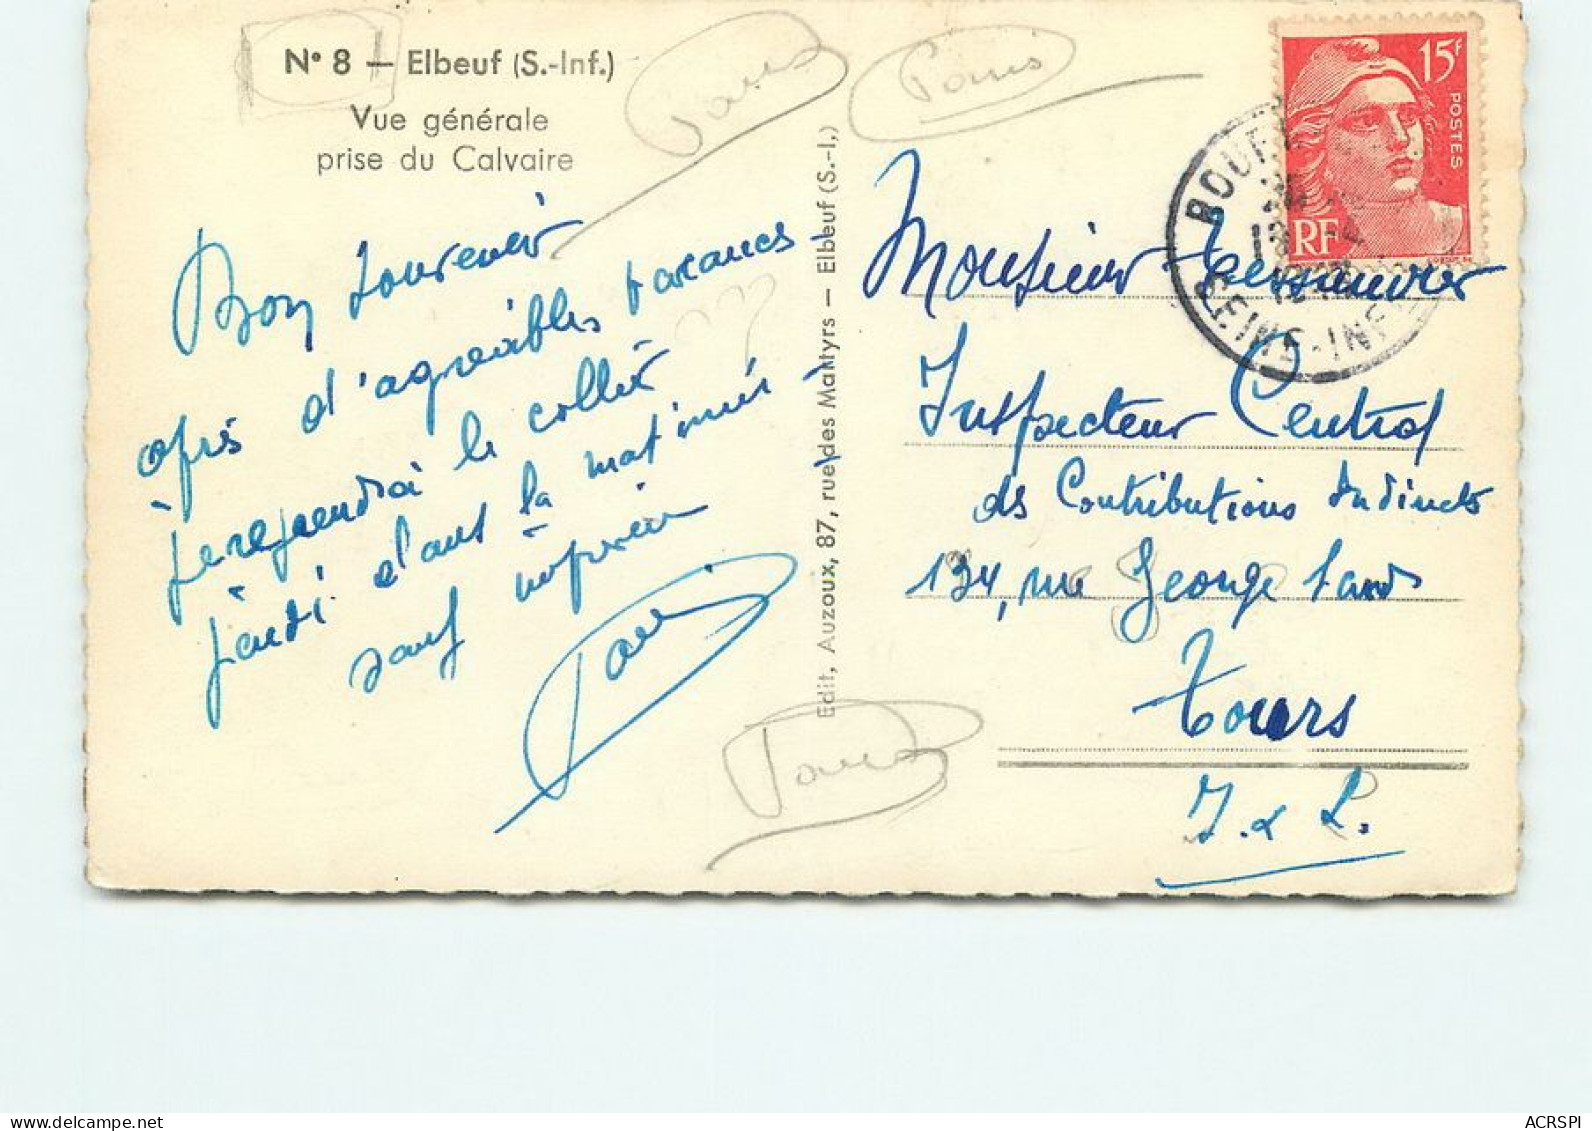 N° 8 — Elbeuf (S.-Inf.)
Vue générale
prise du Calvaire
Bon souvenir
après d'agréables vacances -
je reprendrai le collier
jeudi dans la matinée -
sauf imprévu
Edit, Auzoux, 87, rue des Martyrs — Elbeuf (S.-I.)
15F
POSTES
RF
SEINE-INF
Monsieur
Inspecteur Central
des Contributions Indirects
134, rue George Sand
Tours
I. & L.
delcampe.net
ACRSPI